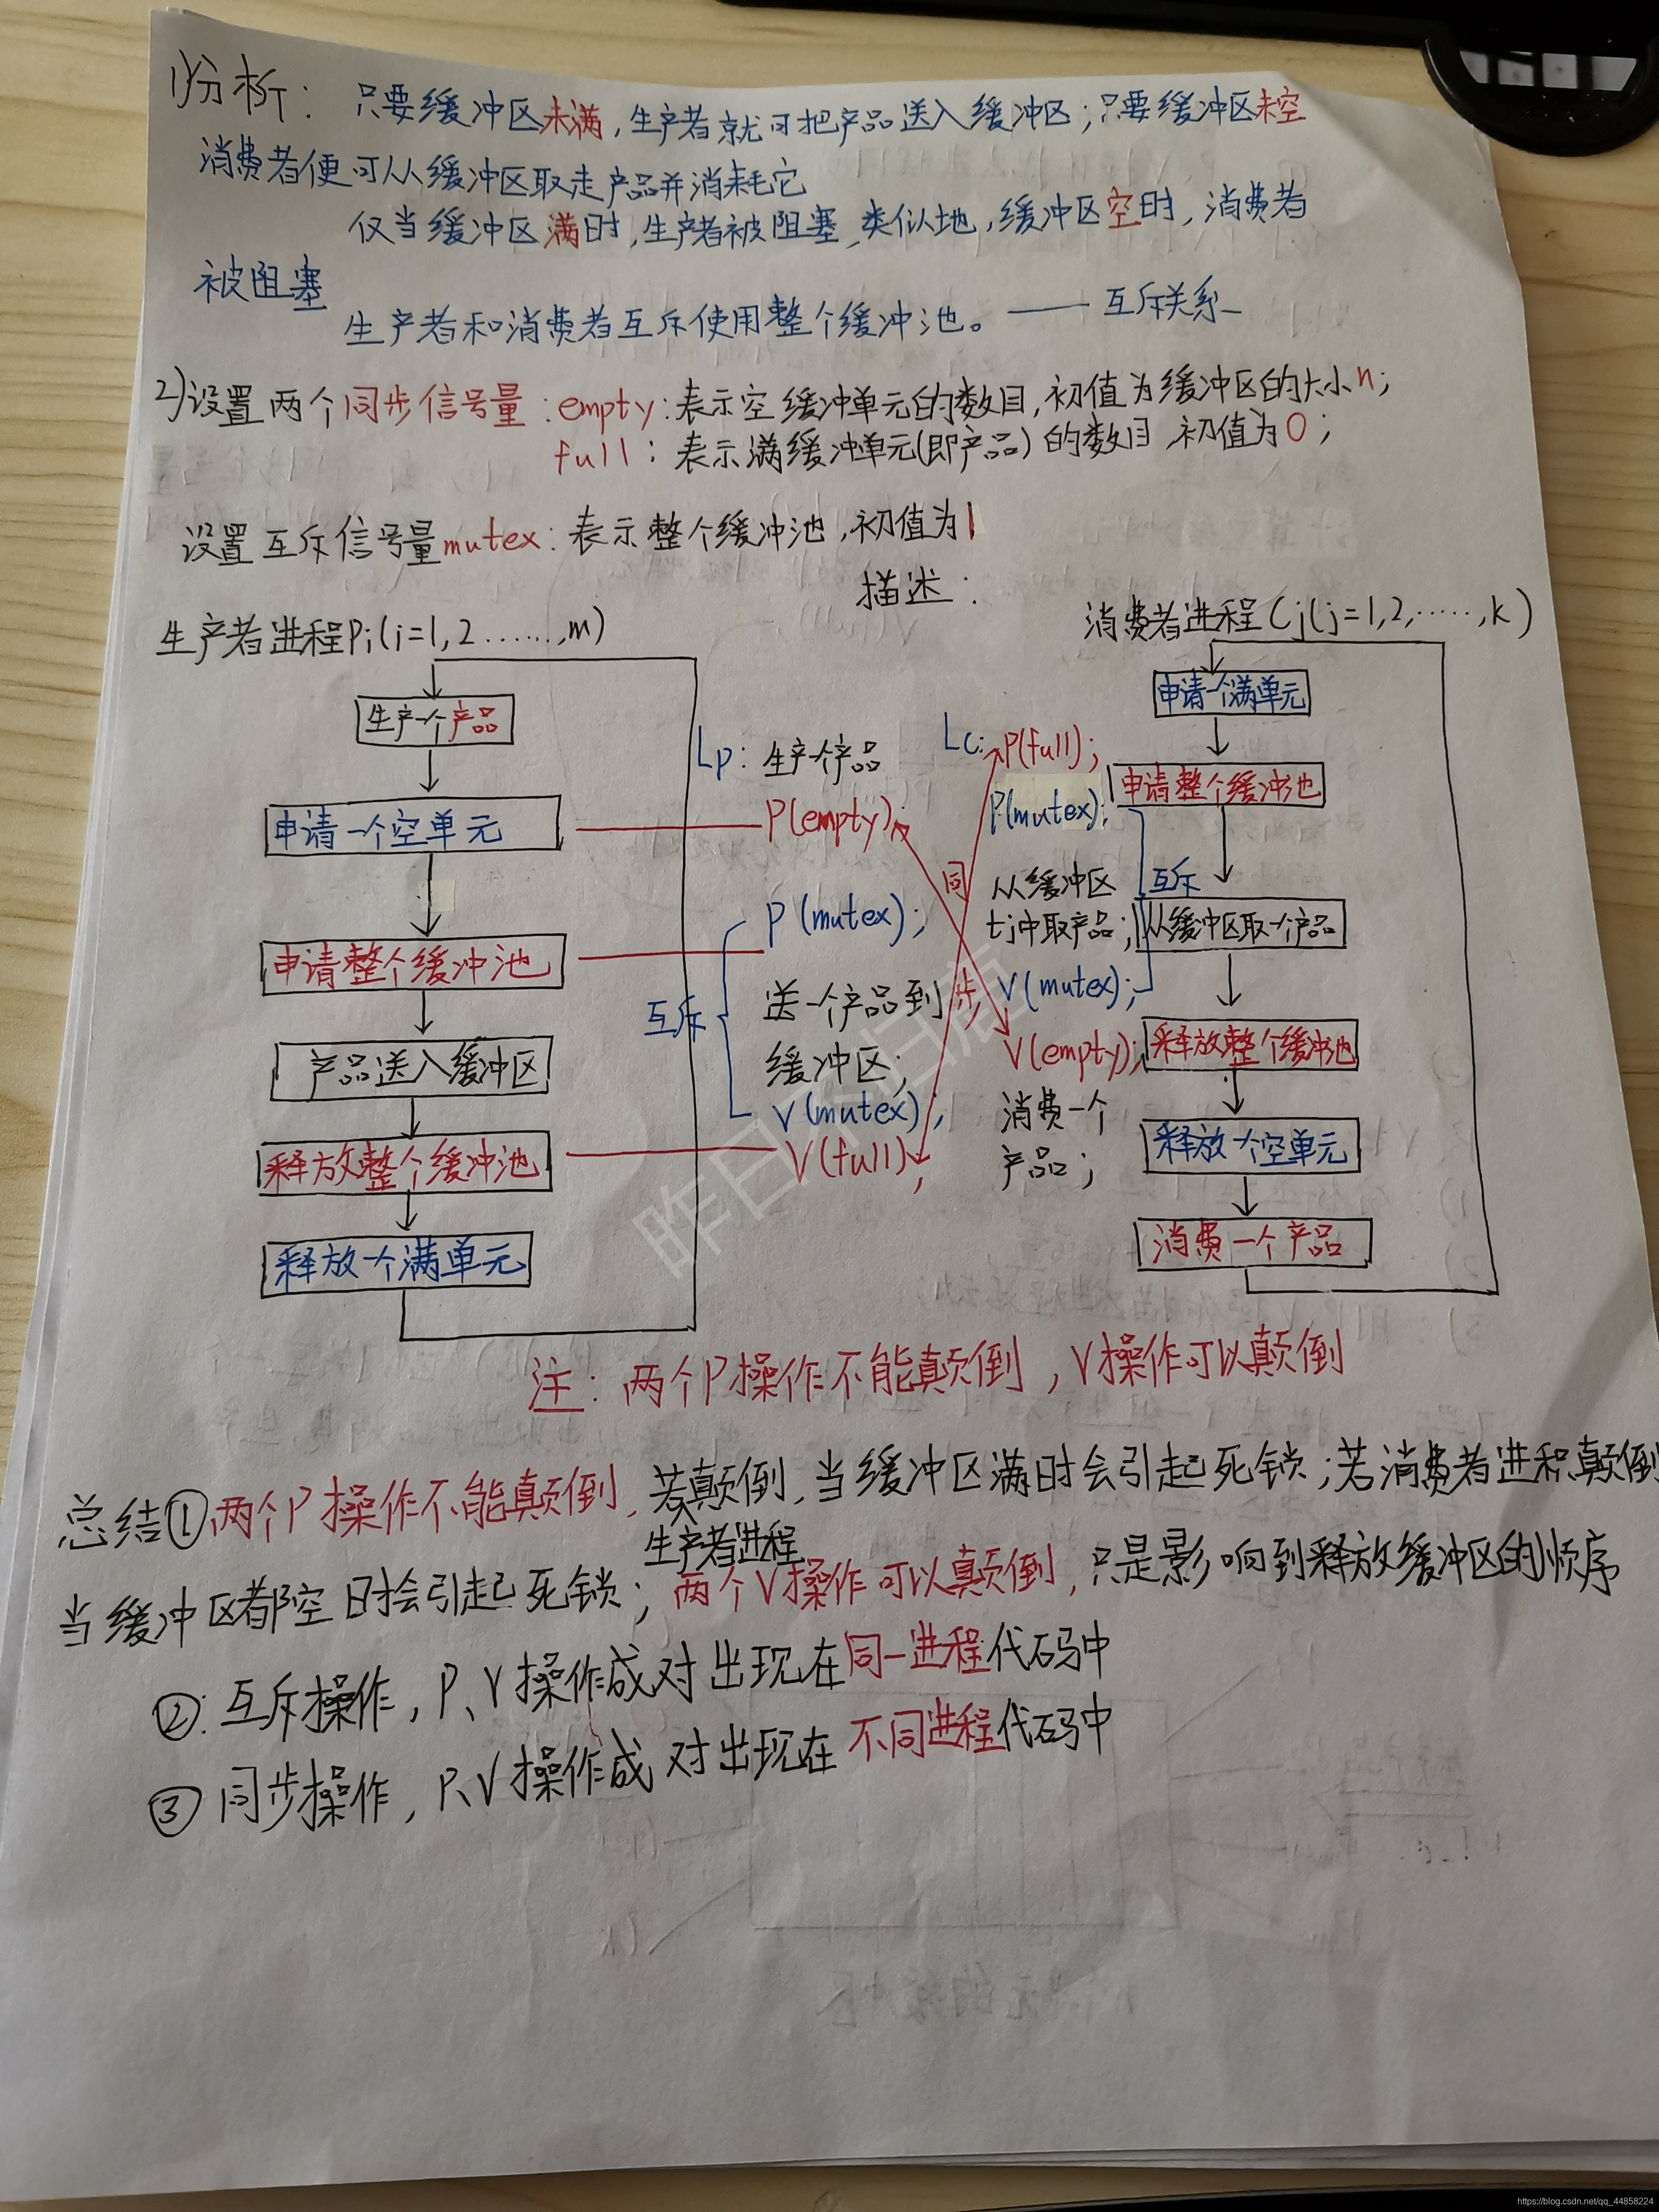 1)分析：只要缓冲区未满，生产者就可把产品送入缓冲区；只要缓冲区未空
消费者便可从缓冲区取走产品并消耗它
仅当缓冲区满时，生产者被阻塞，类似地，缓冲区空时，消费者
被阻塞
生产者和消费者互斥使用整个缓冲池。—— 互斥关系
2)设置两个同步信号量：empty：表示空缓冲单元的数目，初值为缓冲区的大小n；
full：表示满缓冲单元(即产品)的数目，初值为0；
设置互斥信号量mutex：表示整个缓冲池，初值为1
描述：
生产者进程Pi(i=1,2......,m)
消费者进程Cj(j=1,2,.....,k)
生产一个产品
申请一个空单元
申请整个缓冲池
产品送入缓冲区
释放整个缓冲池
释放一个满单元
Lp：生产一个产品
P(empty);
P(mutex);
送一个产品到
缓冲区;
V(mutex);
V(full);
互斥
同
步
Lc：P(full);
P(mutex);
从缓冲区
中取产品;
V(mutex);
V(empty);
消费一个
产品;
互斥
申请一个满单元
申请整个缓冲池
从缓冲区取一个产品
释放整个缓冲池
释放一个空单元
消费一个产品
注：两个P操作不能颠倒，V操作可以颠倒
总结①两个P操作不能颠倒，若颠倒，当缓冲区满时会引起死锁；若消费者进程颠倒
生产者进程
当缓冲区都空时会引起死锁；两个V操作可以颠倒，只是影响到释放缓冲区的顺序
②：互斥操作，P、V操作成对出现在同一进程代码中
③同步操作，P、V操作成对出现在不同进程代码中
https://blog.csdn.net/qq_44858224